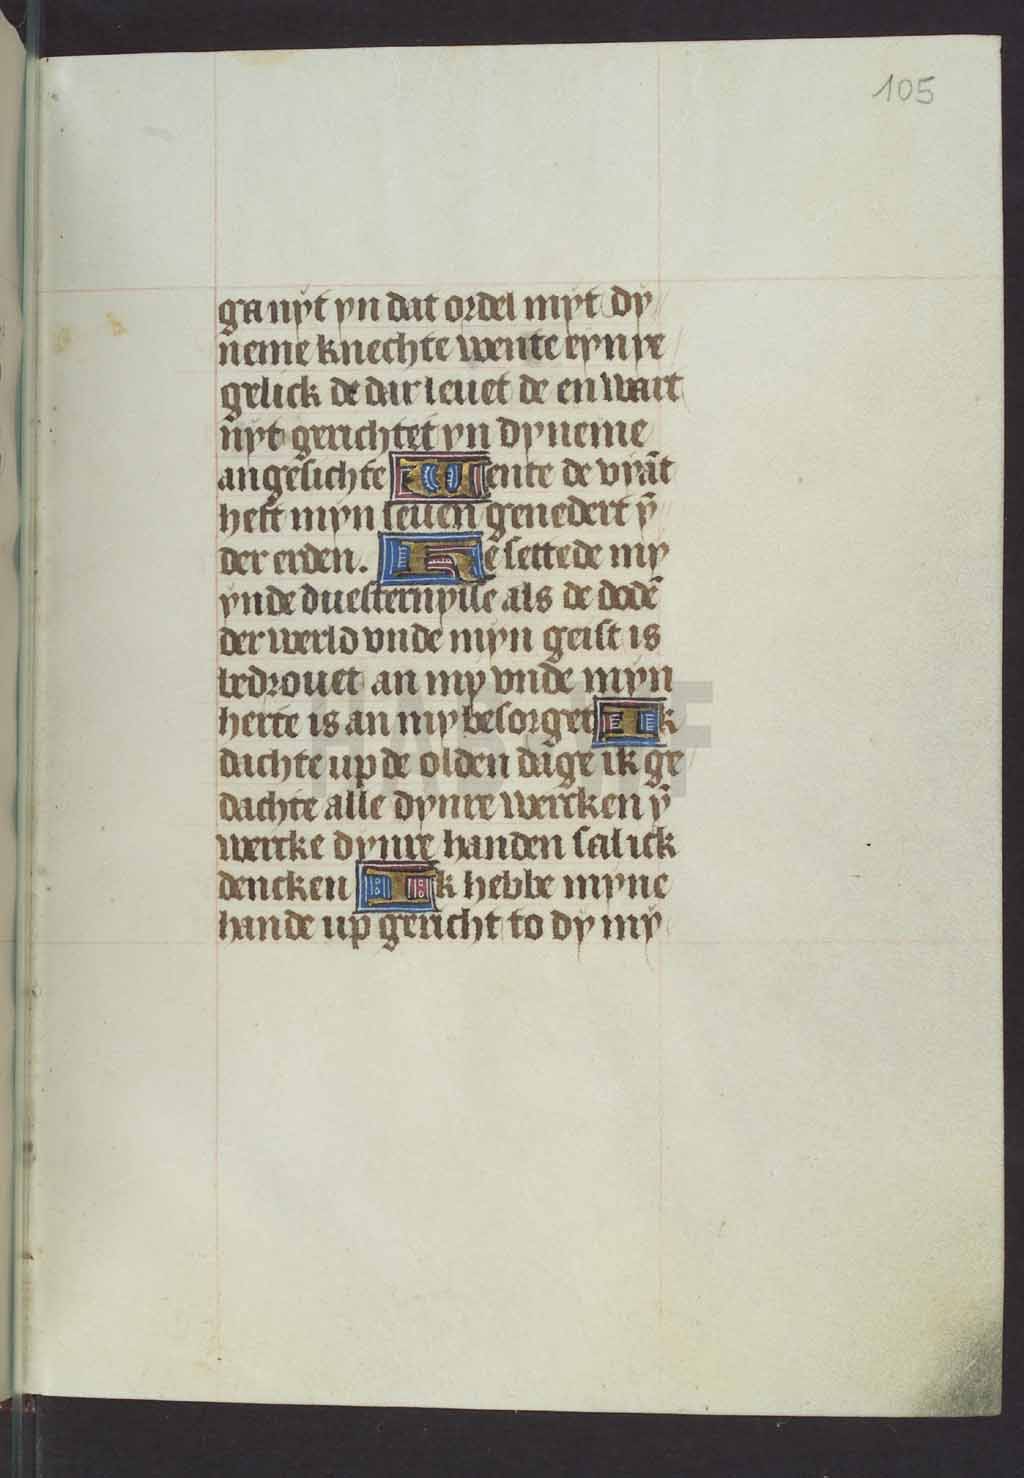 105
ga nyt yn dat ordel myt dy
neme knechte wente eynre
gelick de dar leuet de en wart
nyt gerichtet yn dyneme
angesichte Wente de vyãt
heft myn leuen genedert ỹ
der erden. He settede my
ynde duesternysse als de dodẽ
der werld vnde myn geist is
bedrouet an my vnde myn
herte is an my besorget Ik
dachte up de olden dage ik ge
dachte alle dynre wercken ỹ
wercke dynre handen sal ick
dencken Ik hebbe myne
hande up gericht to dy mỹ